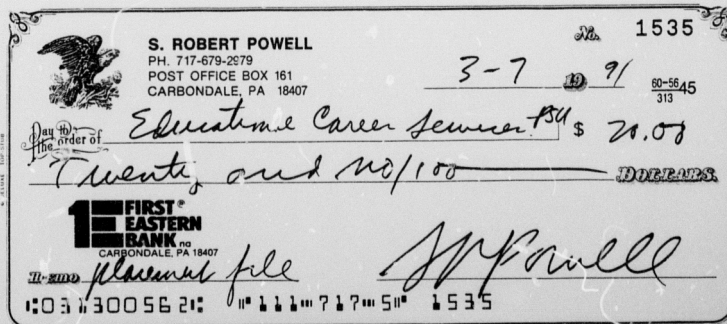 No. 1535
S. ROBERT POWELL
PH. 717-679-2979
POST OFFICE BOX 161
CARBONDALE, PA 18407
3-7 19 91
60-5645
313
Pay to the order of Educational Career Services PSU $ 20.00
Twenty and no/100 DOLLARS
1E FIRST EASTERN BANK na
CARBONDALE, PA 18407
placement file S R Powell
⑆031300562⑆ ⑈111⑉717⑉5⑈ 1535